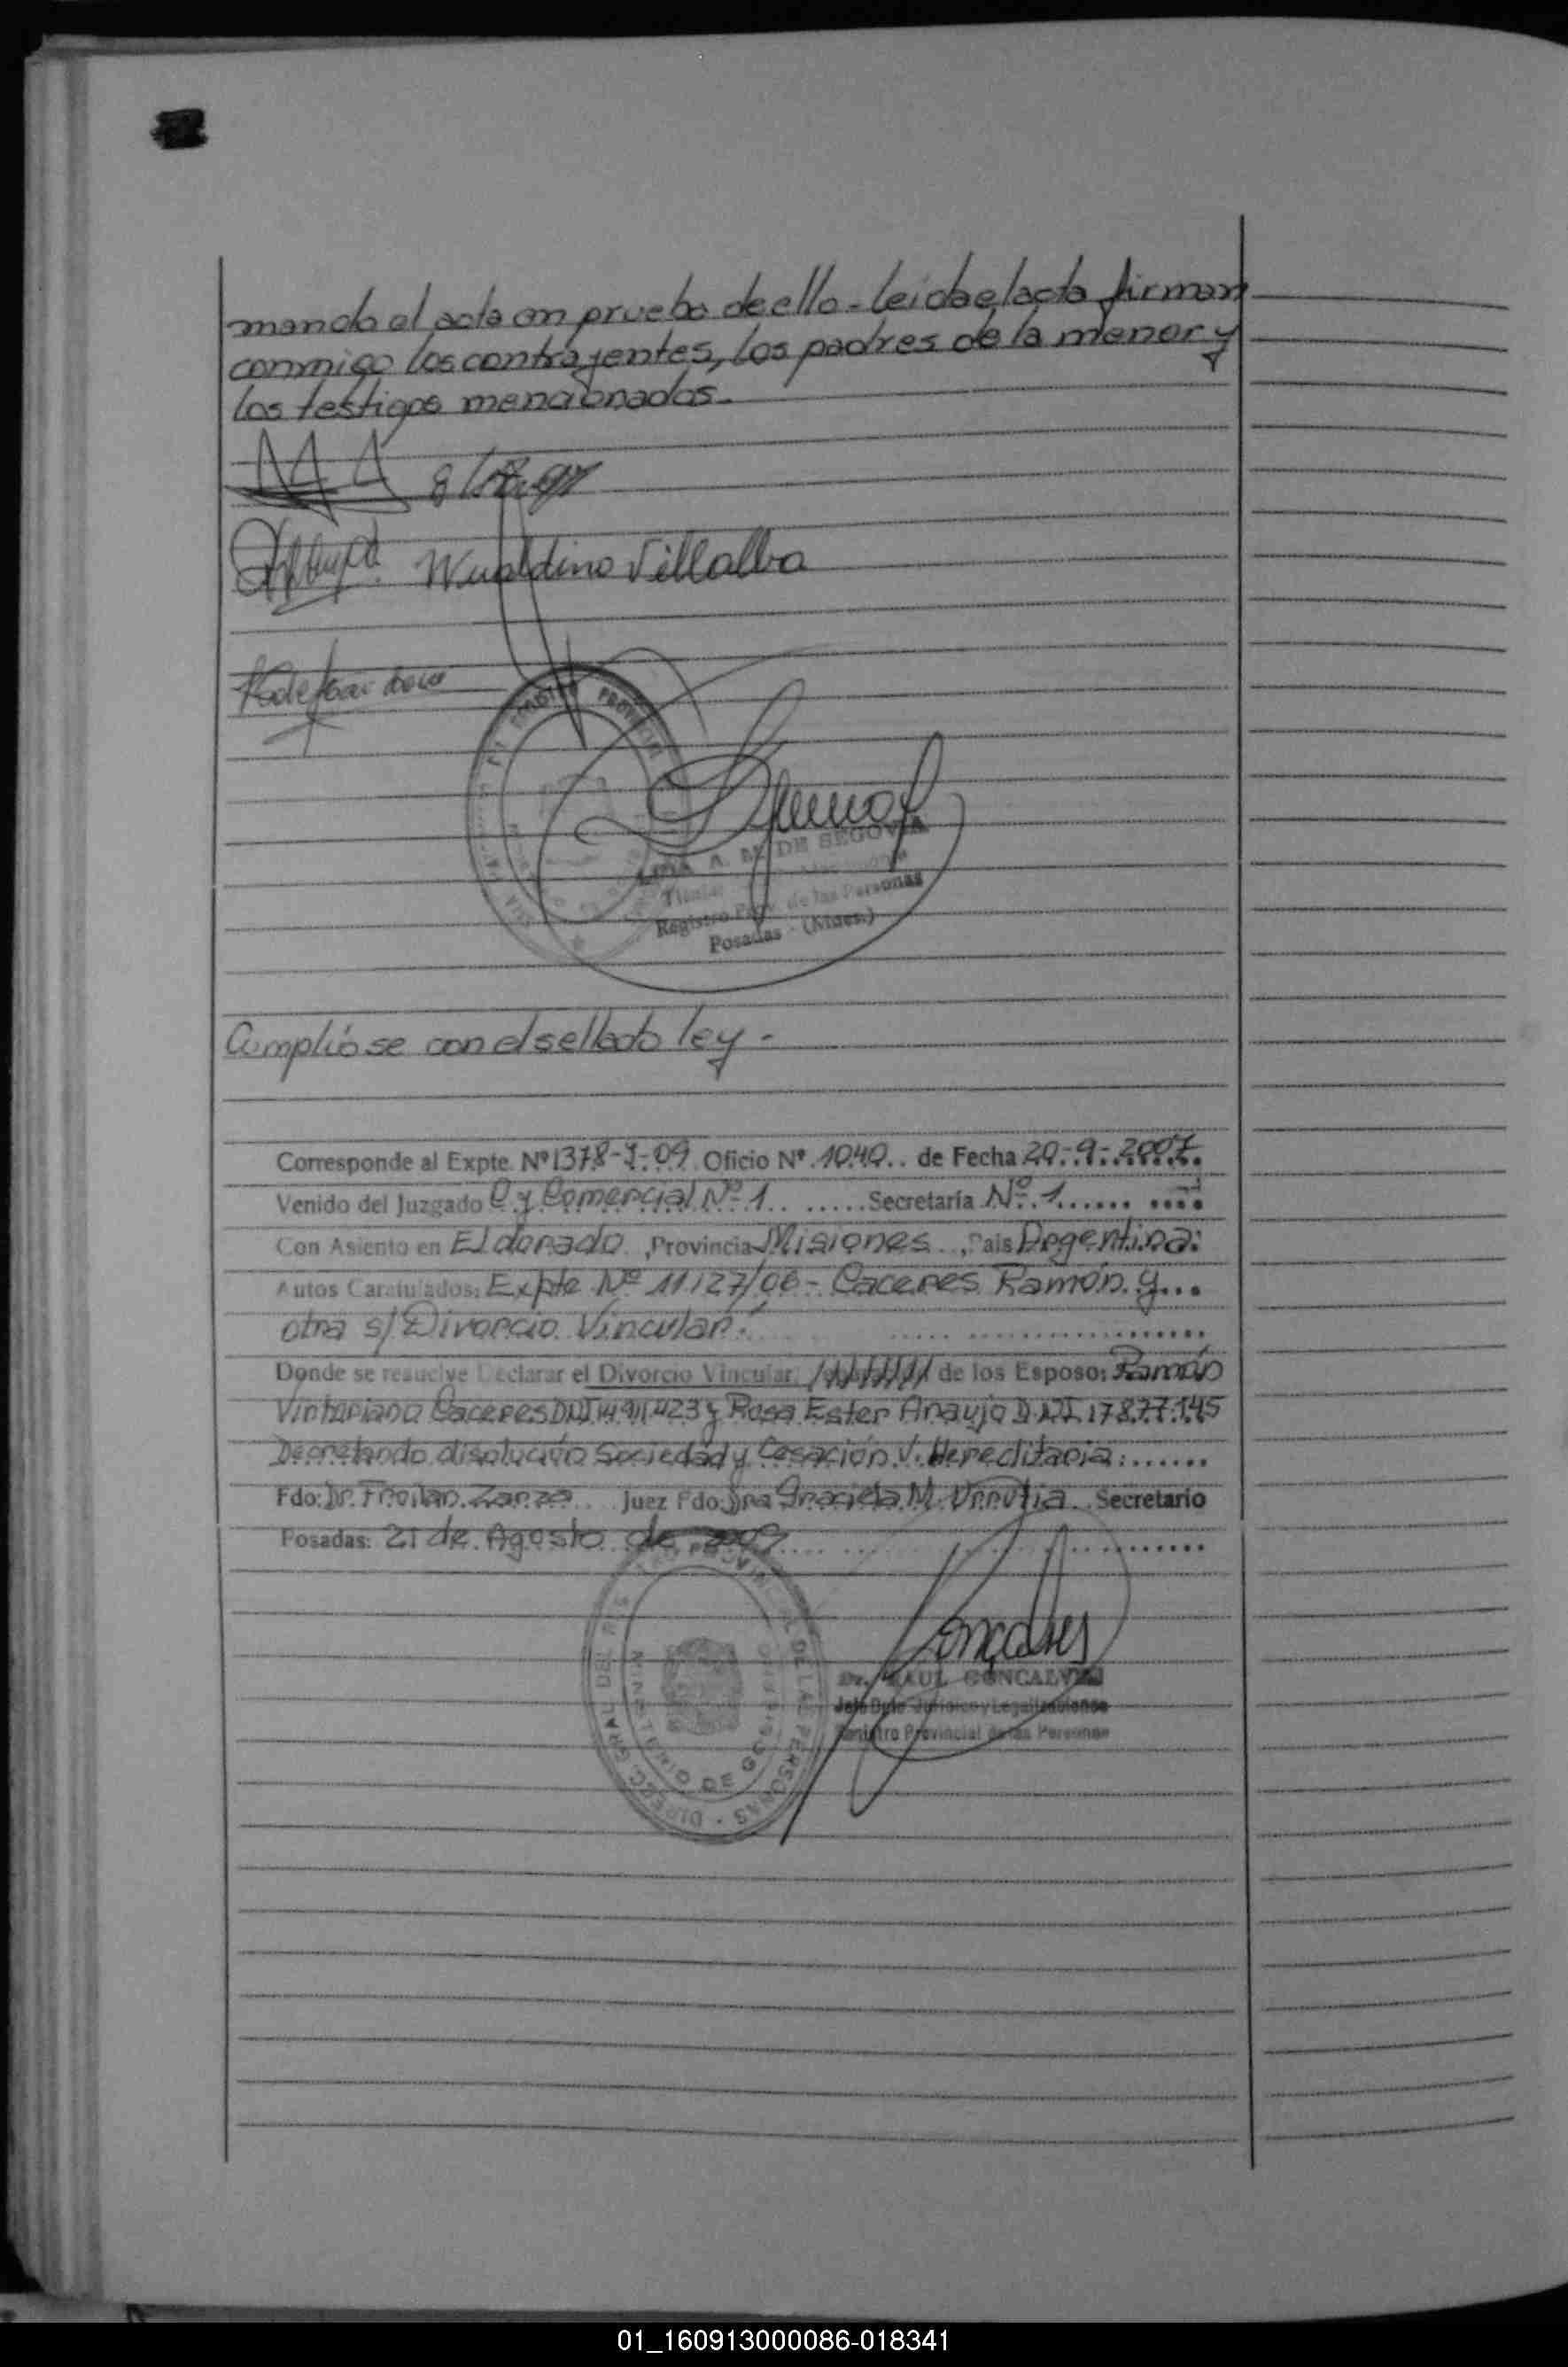 mando el acta en prueba de ello - leida el acta firman
conmigo los contrayentes, los padres de la menor y
los testigos mencionados.-
Wualdino Villalba
A. M. DE SEGOVIA
Registro Prov. de las Personas
Posadas - (Mnes.)
Cumplióse con el sellado ley -
Corresponde al Expte. Nº 1378-J-09 Oficio Nº 1040.. de Fecha 20-9-2007
Venido del Juzgado C. y Comercial Nº 1 ...... Secretaría Nº 1 ......
Con Asiento en Eldorado , Provincia Misiones , País Argentina.
Autos Caratulados: Expte Nº 11127/06 - Caceres Ramón y...
otra s/ Divorcio Vincular.
Donde se resuelve Declarar el Divorcio Vincular, de los Esposo: Ramón
Caceres DNI 14.911.423 y Rosa Ester Araujo D.N.I. 17.877.145
Decretando disolución Sociedad y Cesación V. Hereditaria.......
Fdo: Dr. Froilan Zarza Juez Fdo: Dra Graciela M. Urrutia Secretario
Posadas: 21 de Agosto de 2009
PROVINCIAL DE LAS PERSONAS - DIREC. GRAL DEL
MINISTERIO DE GOBIERNO
Dr. RAUL GONCALVES
Jefe Dpto Jurídico y Legalizaciones
Registro Provincial de las Personas
01_160913000086-018341